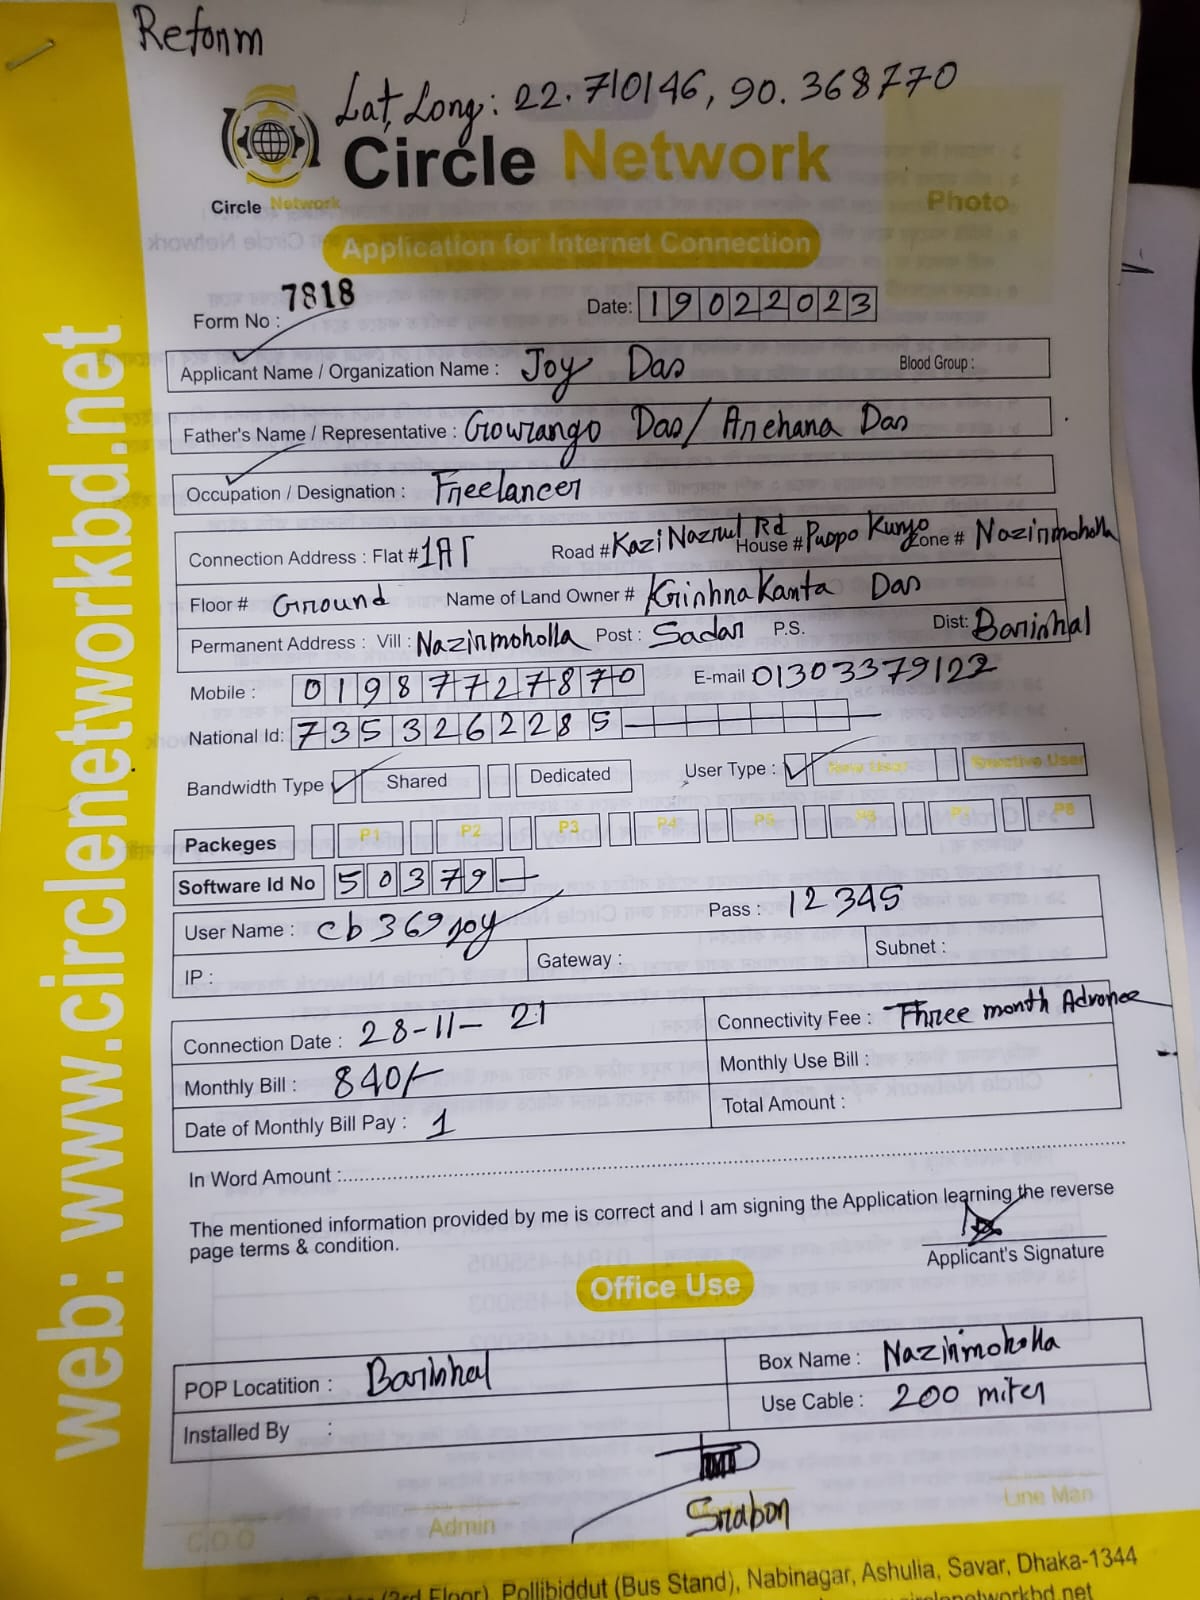 Reform
Lat, Long: 22.710146, 90.368770
Circle Network
Circle Network
Photo
Application for Internet Connection
Form No : 7818
Date: 19022023
Applicant Name / Organization Name : Joy Das
Blood Group :
Father's Name / Representative : Gowrango Das/ Archana Das
Occupation / Designation : Freelancer
Connection Address : Flat # 1A Road # Kazi Nazrul Rd House # Puspo Kunjo Zone # Nazirmoholla
Floor # Ground Name of Land Owner # Krishna Kanta Das
Permanent Address : Vill : Nazirmoholla Post : Sadar P.S. Dist: Barishal
Mobile : 01987727870 E-mail 01303379122
National Id: 7353262285
Bandwidth Type ✓ Shared Dedicated User Type : ✓ New User
Packeges P1 P2 P3 P4 P5 P6 P7 P8
Software Id No 50379
User Name : cb369joy Pass : 12345
IP : Gateway : Subnet :
Connection Date : 28-11-21 Connectivity Fee : Three month Advance
Monthly Bill : 840/- Monthly Use Bill :
Date of Monthly Bill Pay : 1 Total Amount :
In Word Amount :
The mentioned information provided by me is correct and I am signing the Application learning the reverse
page terms & condition.
Applicant's Signature
Office Use
POP Locatition : Barishal Box Name : Nazirmoholla
Installed By : Use Cable : 200 miter
Srabon
C.O.O Admin Line Man
(3rd Floor), Pollibiddut (Bus Stand), Nabinagar, Ashulia, Savar, Dhaka-1344
web: www.circlenetworkbd.net